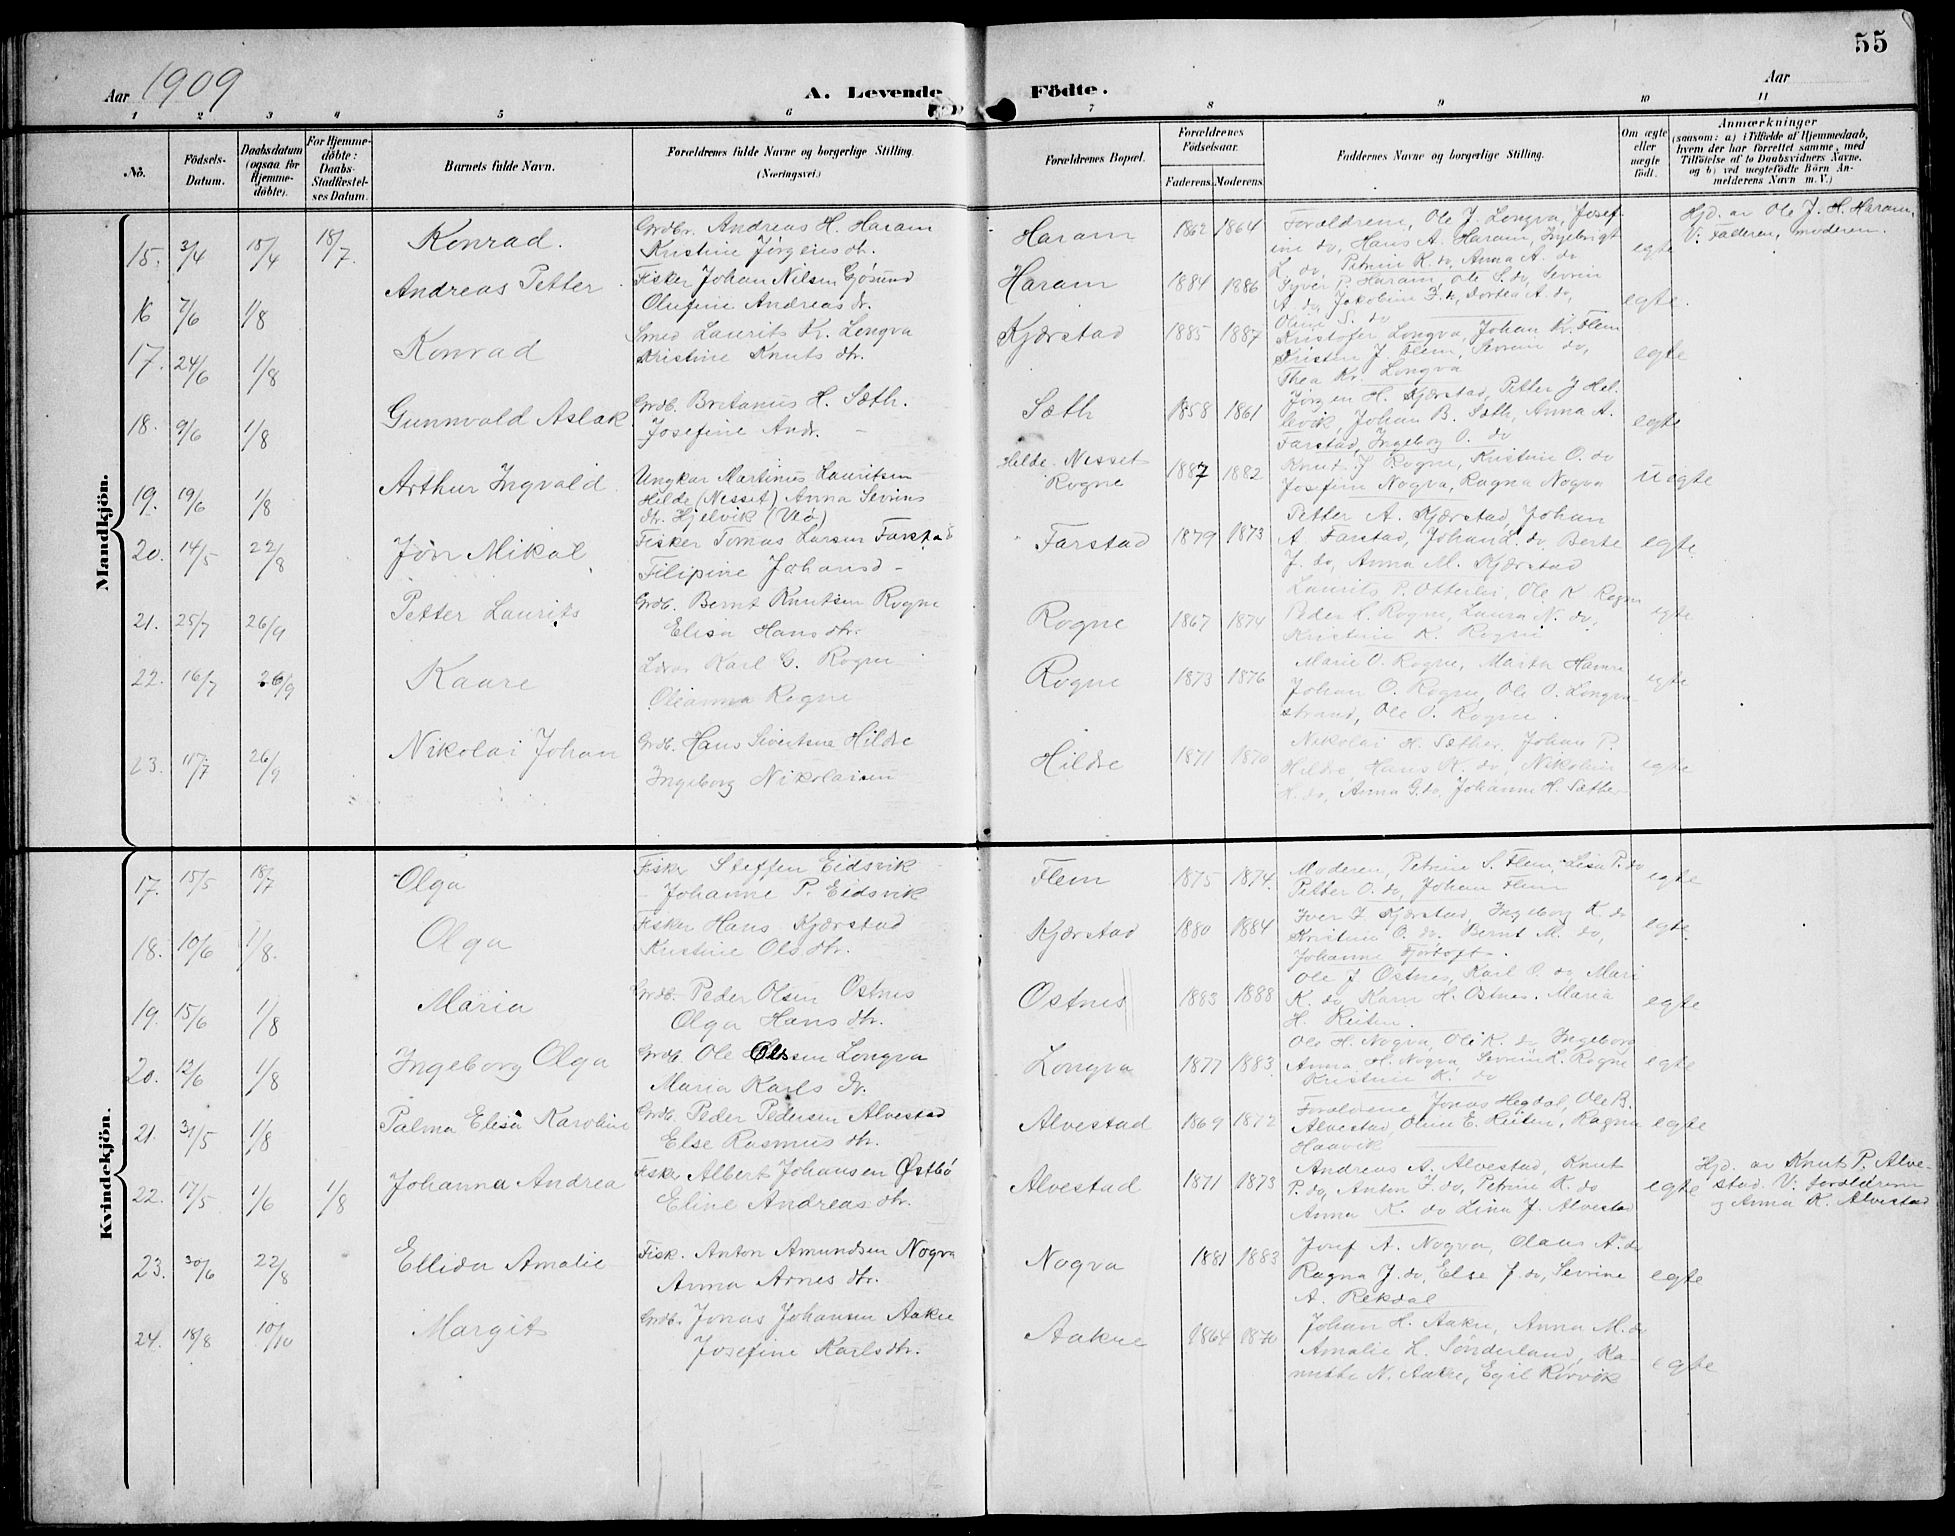 55
Aar 1909
A. Levende Födte.
Aar
1 2 3 4 5 6 7 8 9 10 11
No.
Födsels-Datum.
Daabsdatum (ogsaa for Hjemme-döbte).
For Hjemme-döbte: Daabs-Stadfæstel-ses Datum.
Barnets fulde Navn.
Forældrenes fulde Navne og borgerlige Stilling. (Næringsvei.)
Forældrenes Bopæl.
Forældrenes Födselsaar.
Faderens. Moderens.
Faddernes Navne og borgerlige Stilling.
Om ægte eller uægte födt.
Anmærkninger
(saasom: a) i Tilfælde af Hjemmedaab, hvem der har forrettet samme, med Tilföielse af to Daabsvidners Navne, og b) ved uægtefödte Börn An-melderens Navn m. V.)
Mandkjön.
15. 3/4 15/4 18/7 Konrad.
Grdbr. Andreas H. Haram
Kristine Jørgensdtr.
Haram 1862 1864
Forældrene, Ole J. Longva, Josef-
ine do, Hans A. Haram, Ingebrigt
L. do, Petrine K. do, Anna A. do
egte
Hjd. av Ole J. H. Haram.
V: Faderen, moderen.
16 7/6 1/8 Andreas Petter
Fisker Johan Nilsen Gjøsund
Olufine Andreas dr.
Haram 1884 1886
Syver P. Haram, Ole S. do, Sevrin
A. do, Jakobine J. do, Dortea A. do,
Oline S. do
egte.
17. 24/6 1/8 Konrad
Smed Laurits Kr. Longva
Kristine Knuts dtr.
Kjærstad 1885 1887
Kristofer Longva, Johan Kr. Flem
Kristen J. Flem, Sevrin do,
Thea Kr. Longva
egte
18. 9/6 1/8 Gunnvald Aslak
Grdb. Britanus H. Sæth.
Josefine Andr. –
Sæth 1858 1861
Jørgen H. Kjærstad, Petter J. Hel-
levik, Johan B. Sæth, Anna A.
Farstad, Ingeborg O. do
egte
19. 19/6 1/8 Arthur Ingvald
Ungkar Martinus Lauritsen
Hilde (Nesset) Anna Sevrins
dtr. Hjelvik (Vø)
Hilde. Nesset
Rogne 1887 1882
Knud J. Rogne, Kristine O. do
Josefine Nogva, Ragna Nogva
uegte
20. 14/5 22/8 Jøn Mikal
Fisker Tomas Larsen Farstad
Filipine Johansd –
Farstad 1879 1873
Petter A. Kjærstad, Johan
A. Farstad, Johan L. do, Berte
J. do, Anna M. Kjærstad
egte
21. 25/7 26/9 Petter Laurits
Grdb. Bernt Knutsen Rogne
Elisa Hansdtr.
Rogne 1867 1874
Laurits P. Otterlei, Ole K. Rogne
Peder K. Rogne, Laura N. do,
Kristine K. Rogne
egte
22. 16/7 26/9 Kaare
Lærer Karl G. Rogne
Oleanna Rogne
Rogne 1873 1876
Marie O. Rogne, Marta Hamre
Johan O. Rogne, Ole O. Longva
strand, Ole O. Rogne.
egte
23. 11/7 26/9 Nikolai Johan
Grdb. Hans Sivertsen Hildre
Ingeborg Nikolaisen
Hildre 1871 1870
Nikolai H. Sæther, Johan P.
Hildre, Hans K. do, Nikolin
K. do, Anna G. do, Johanne H. Sæther
egte
Kvindekjön.
17. 15/5 18/7 Olga
Fisker Steffen Eidsvik
Johanne P. Eidsvik
Flem 1875 1874.
Moderen, Petrine S. Flem, Lisa P. do
Petter O. do, Johan Flem
egte
18. 10/6 1/8. Olga
Fisker Hans Kjærstad
Kristine Ols dtr.
Kjærstad 1880 1884
Iver J. Kjærstad, Ingeborg K. do
Kristine O. do. Bernt M. do,
Johanne Fjørtoft.
egte.
19. 15/6 1/8 Maria
Grdb. Peder Olsen Ostnes
Olga Hans dtr.
Ostnes 1883 1888
Ole J. Ostnes, Karl O. do, Mari
K. do, Karn H. Ostnes. Maria
H. Reiten.
egte
20. 12/6 1/8 Ingeborg Olga
Grdb. Ole Olsen Longva
Maria Karls dr.
Longva 1877 1883
Ole H. Nogva, Ole K. do, Ingeborg
Anna H. Nogva, Sevrin L. Rogne
Kristine K. do
egte
21. 31/5 1/8 Palma Elisa Karoline
Grdb. Peder Pedersen Alvestad
Else Rasmus dtr.
Alvestad 1869 1872
Forældrene Jonas Hegdal, Ole B.
Alvestad Oline E. Reiten, Ragna
Haavik
egte
22. 17/5 1/6 1/8 Johanna Andrea
Fisker Albert Johansen Østbø
Eline Andreas dtr.
Alvestad 1871 1873
Andreas A. Alvestad, Knut
P. do, Anton J. do, Petrine K. do
Anna K. do Lina J. Alvestad
egte
Hjd. av Knut P. Alve-
stad. V: Forældrene
og Anna K. Alvestad
23. 30/6 22/8 Ellida Amalie
Fisk. Anton Amundsen Nogva
Anna Arnes dtr.
Nogva 1881 1883
Josef A. Nogva, Olaus A. do
Ragna J. do, Else J. do, Sevrine
A. Rekdal
egte
24. 18/8 10/10 Margit
Grdb. Jonas Johansen Aakre
Josefine Karlsdtr.
Aakre 1864 1870
Johan H. Aakre, Anna M. do
Amalie L. Sønderland, Ka-
nutte N. Aakre, Egil Rørvik
egte